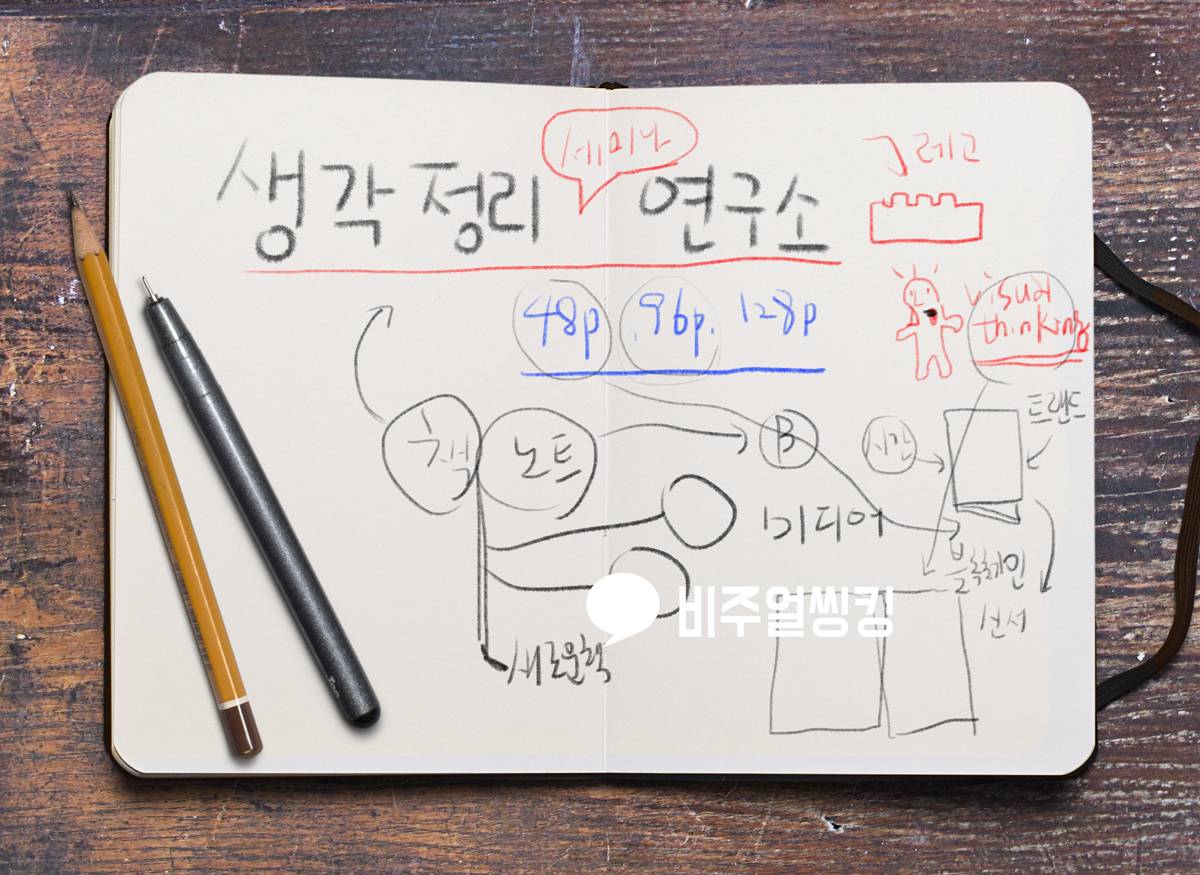 세미나
생각정리 연구소
레고
48p 96p. 128p
visual
thinking
책 노트 B 시간 트랜드
미디어
블록체인
비주얼씽킹
센서
새로운책